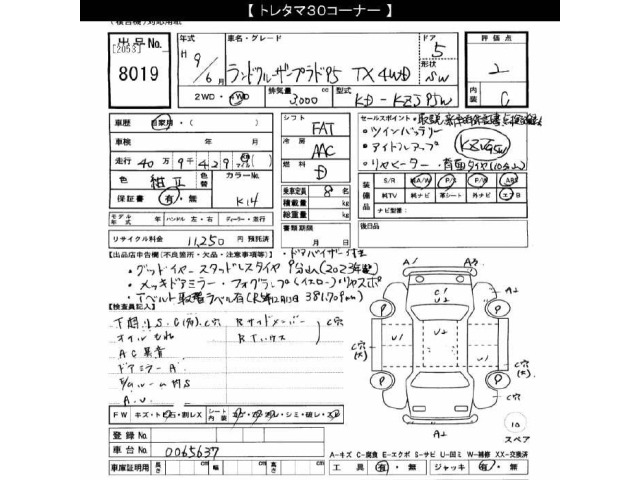 【 トレタマ30コーナー 】
出品No.
[2053]
8019
年式
H 9/6月
車名・グレード
ランドクルーザープラド95 TX 4WD
ドア
5
形状
SW
評価点
2
内装
C
2WD・4WD
排気量
3,000 cc
型式
KD-KZJ95W
車歴 自家用・( )
車検 年 月
走行 40万9千429 ( )
色 紺Ⅱ
色替
カラーNo.
K14
保証書 有・無
シフト
FAT
冷房
AAC
燃料
D
乗車定員 8名
積載量 kg
総重量 kg
セールスポイント
・ツインバッテリー
・アイドルアップ
KZJ95W
・リヤヒーター・背面タイヤ(10分山)
装備品
S/R 純A/W P/S P/W ABS
純TV 純ナビ 革シート 外ナビ エアB
ナビ型番
モデル年式 年 ハンドル 左・右 ディーラー・並行
リサイクル料金 11,250円 預託済
書類期限
月 日
後日品
【出品店申告欄(不良箇所・欠品・注意事項等)】
・ドアバイザー付き
・グッドイヤースタッドレスタイヤ9分山(2023年製)
・メッキドアミラー・フォグランプ(イエロー)・リヤスポ
・Tベルト取替ラベル有(R5年12月13日 381,709km)
【検査員記入】
下廻りS.C(穴)C穴
オイルもれ
AC異音
ドアミラーA
E/gルーム内S
A.U
Rサイドメンバー
C穴
FW キズ・トビ石・割レX
シート内装
登録No.
車台No. 0065637
車庫証明用 長さ cm 幅 cm 高さ cm
A1
A3
C穴
U2
A2
U1
U1
C穴(大)
C穴(大)
P
P
P
P
A2
10
スペア
A-キズ C-腐食 E-エクボ S-サビ U-凹ミ W-補修 XX-交換済
工具 有・無 ジャッキ 有・無